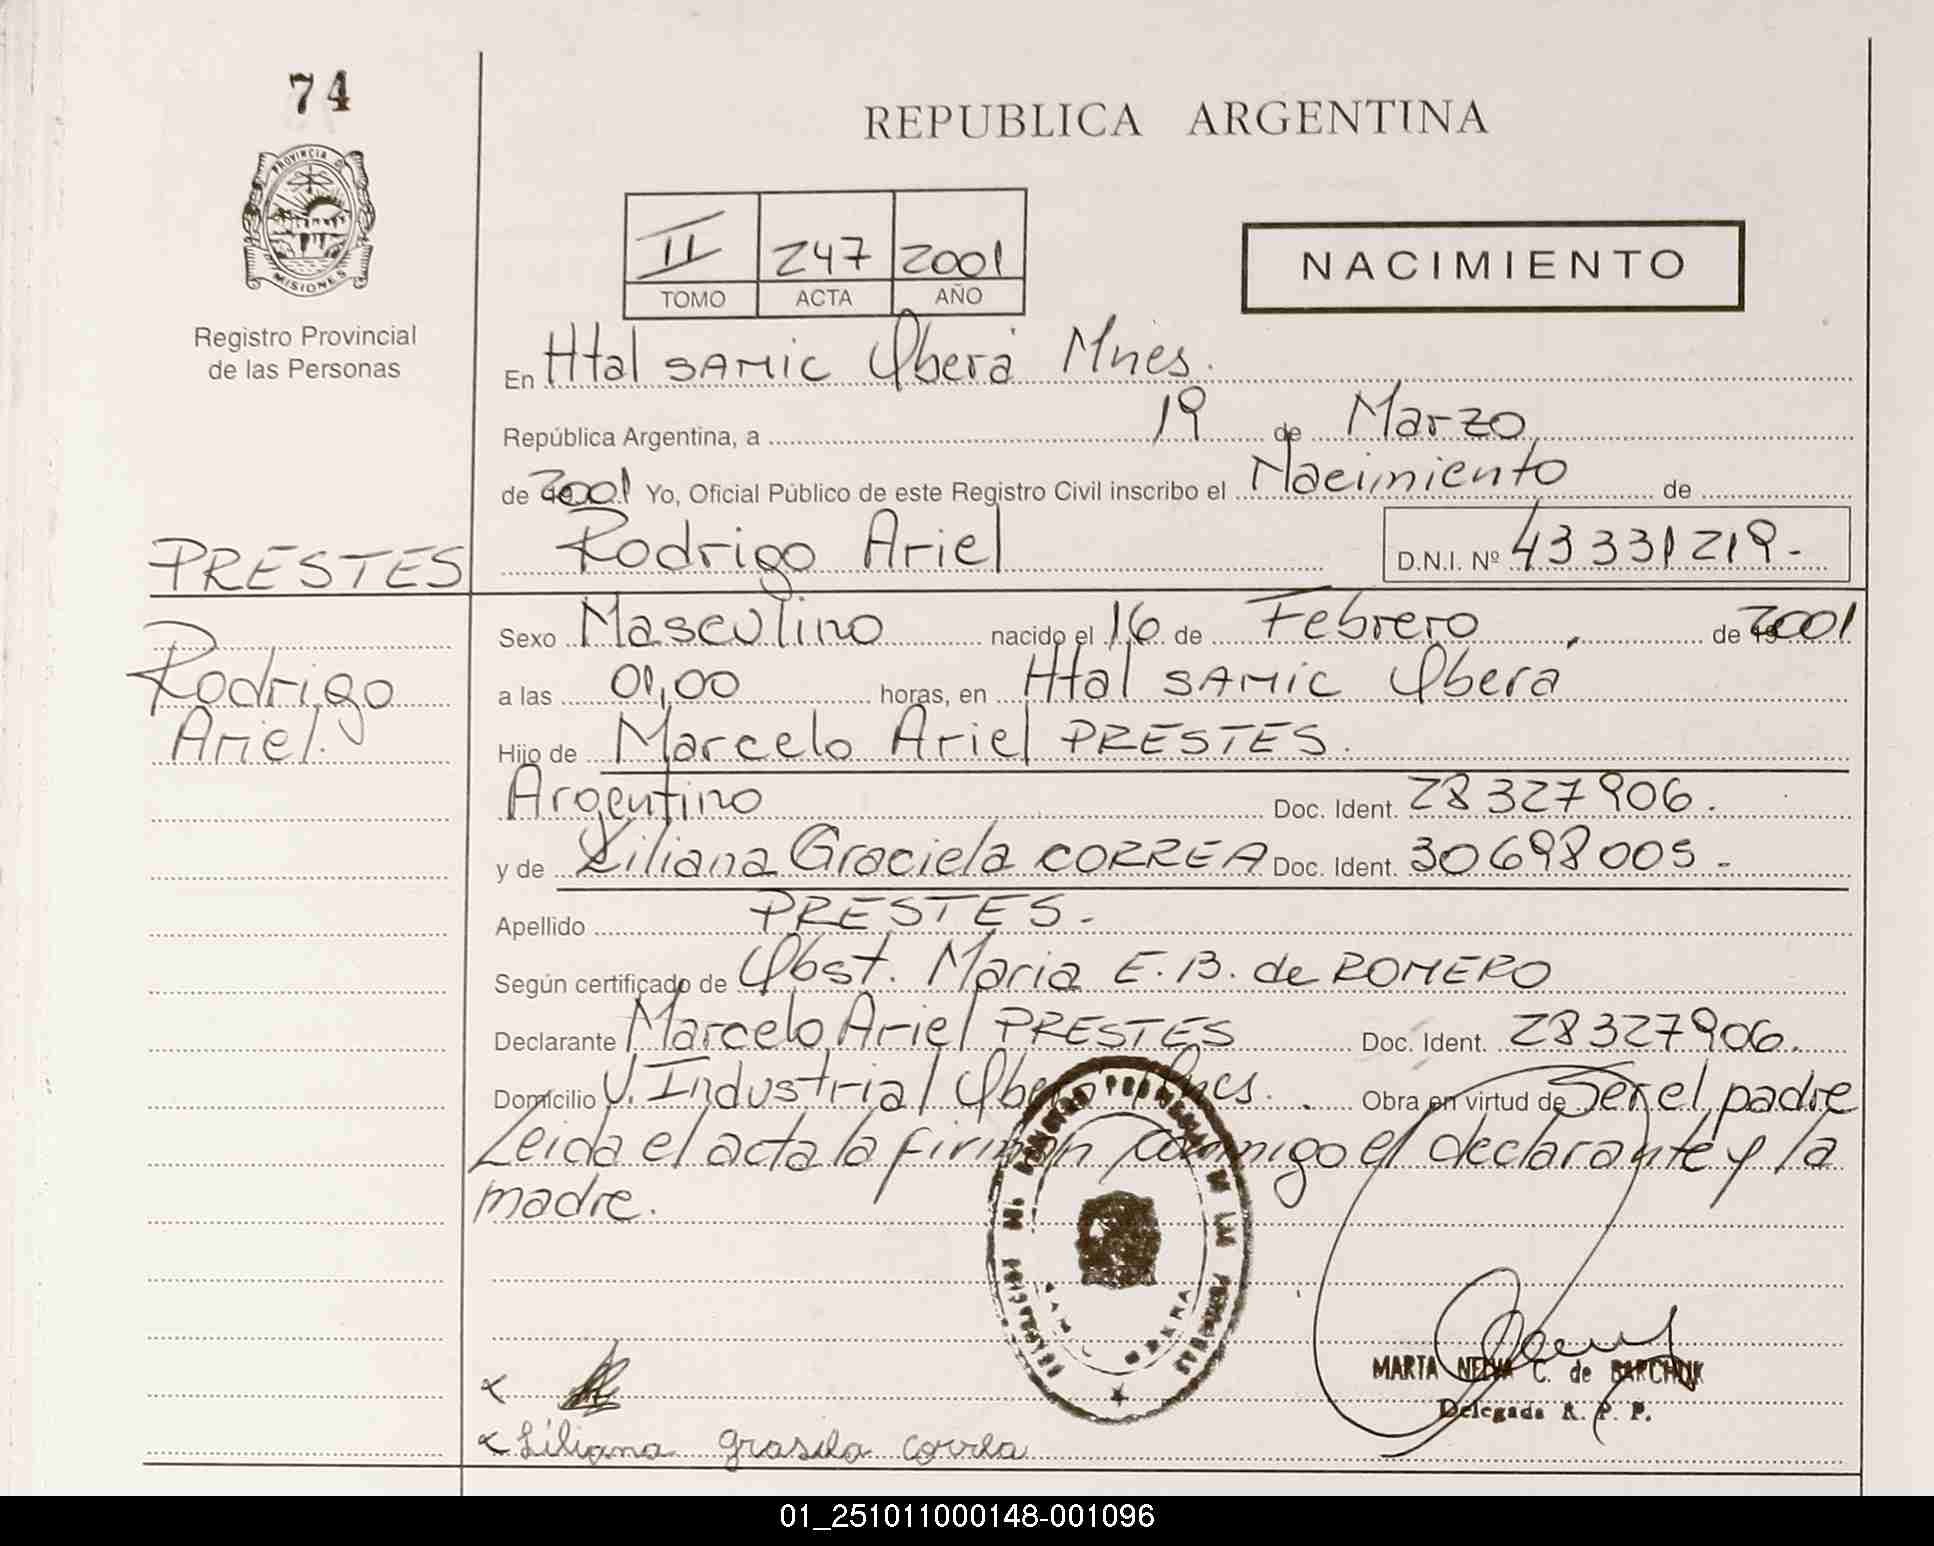 74
REPUBLICA ARGENTINA
PROVINCIA D
MISIONES
Registro Provincial
de las Personas
II 247 2001
TOMO ACTA AÑO
NACIMIENTO
En Htal SAMIC Oberá Mnes.
República Argentina, a 19 de Marzo
de 2001 Yo, Oficial Público de este Registro Civil inscribo el Nacimiento de
Rodrigo Ariel D.N.I. Nº 43331219.-
PRESTES
Rodrigo
Ariel.
Sexo Masculino nacido el 16 de Febrero de 2001
a las 01,00 horas, en Htal SAMIC Oberá
Hijo de Marcelo Ariel PRESTES.
Argentino Doc. Ident. 28327906.
y de Liliana Graciela CORREA Doc. Ident. 30698005.-
Apellido PRESTES.-
Según certificado de Obst. Maria E. B. de ROMERO
Declarante Marcelo Ariel PRESTES Doc. Ident. 28327906.
Domicilio V. Industrial Oberá Mnes. Obra en virtud de Ser el padre
Leida el acta la firman conmigo el declarante y la
madre.
MARTA C. de
Delegada R. P. P.
Liliana grasiela correa
01_251011000148-001096